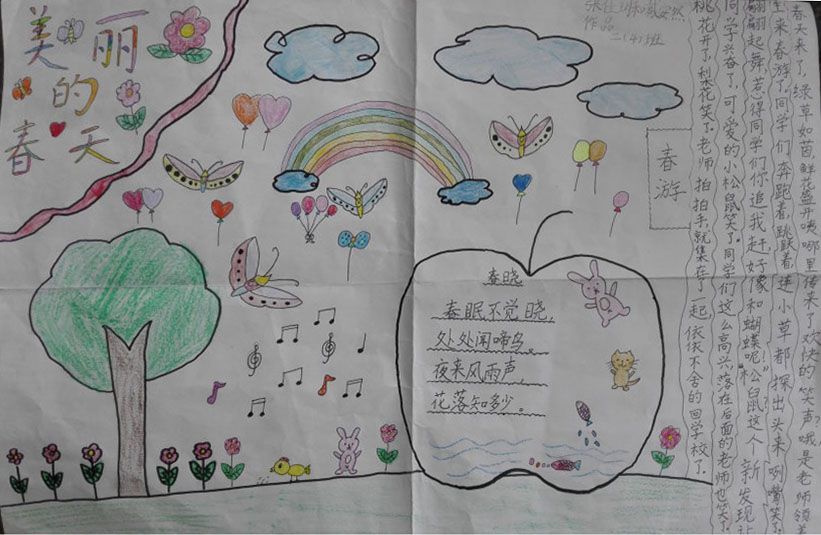 美丽
的
春天
作品
二(4)班
春游
春天来了,绿草如茵鲜花盛开咦哪里传来了欢快的笑声?哦,是老师领着
来春游了。同学们奔跑着跳跃着连小草都探出头来咧嘴笑了
翩翩起舞惹得同学们你追我赶好像和蝴蝶呢!"松鼠这人新发现让
同学兴奋了,可爱的小松鼠笑了。同学们这么高兴落在后面的老师也笑了。
桃花开了,梨花笑了。老师拍拍手就集在了一起,依依不舍的回学校了.
春晓
春眠不觉晓,
处处闻啼鸟。
夜来风雨声,
花落知多少。